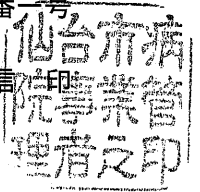 番一号
印
仙台市病
院事業管
理者之印